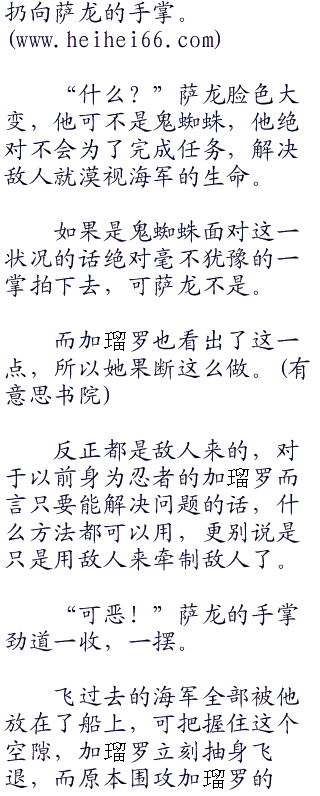 扔向萨龙的手掌。
(www.heihei66.com)
“什么？”萨龙脸色大
变，他可不是鬼蜘蛛，他绝
对不会为了完成任务，解决
敌人就漠视海军的生命。
如果是鬼蜘蛛面对这一
状况的话绝对毫不犹豫的一
掌拍下去，可萨龙不是。
而加瑠罗也看出了这一
点，所以她果断这么做。(有
意思书院)
反正都是敌人来的，对
于以前身为忍者的加瑠罗而
言只要能解决问题的话，什
么方法都可以用，更别说是
只是用敌人来牵制敌人了。
“可恶！”萨龙的手掌
劲道一收，一摆。
飞过去的海军全部被他
放在了船上，可把握住这个
空隙，加瑠罗立刻抽身飞
退，而原本围攻加瑠罗的